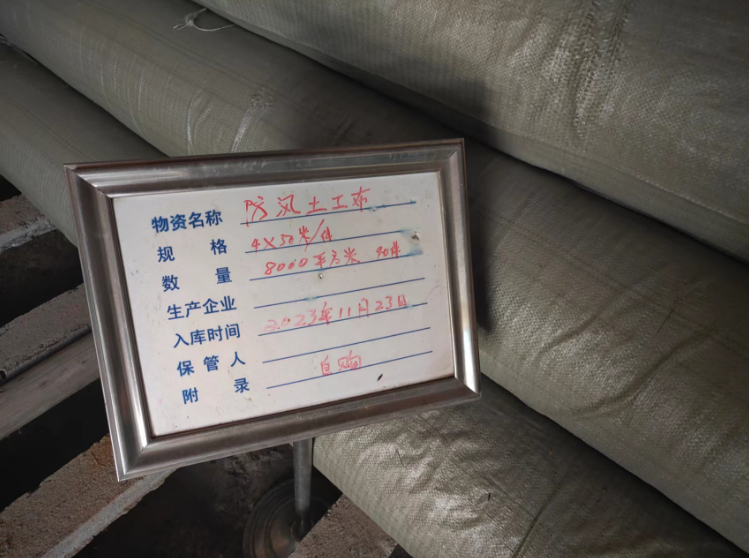 物资名称 防风土工布
规格 4×50米/件
数量 8000平方米 40件
生产企业
入库时间 2023年11月23日
保管人
附录 自购